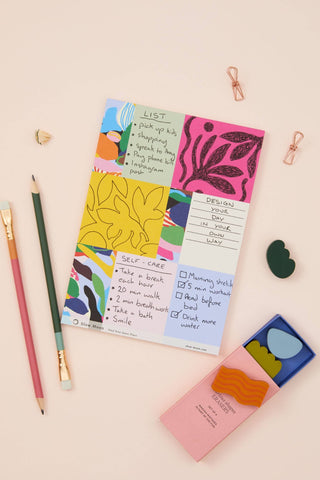 LIST
• pick up kids
• shopping
• speak to
• Pay phone bill
• Instagram
post
DESIGN
YOUR
DAY
IN YOUR
OWN
WAY
SELF-CARE
• Take a break
each hour
• 20 min walk
• 2 min breathwork
• Take a bath
• Smile
Morning stretch
5 min workout
Read before
bed
Drink more
water
ERASERS